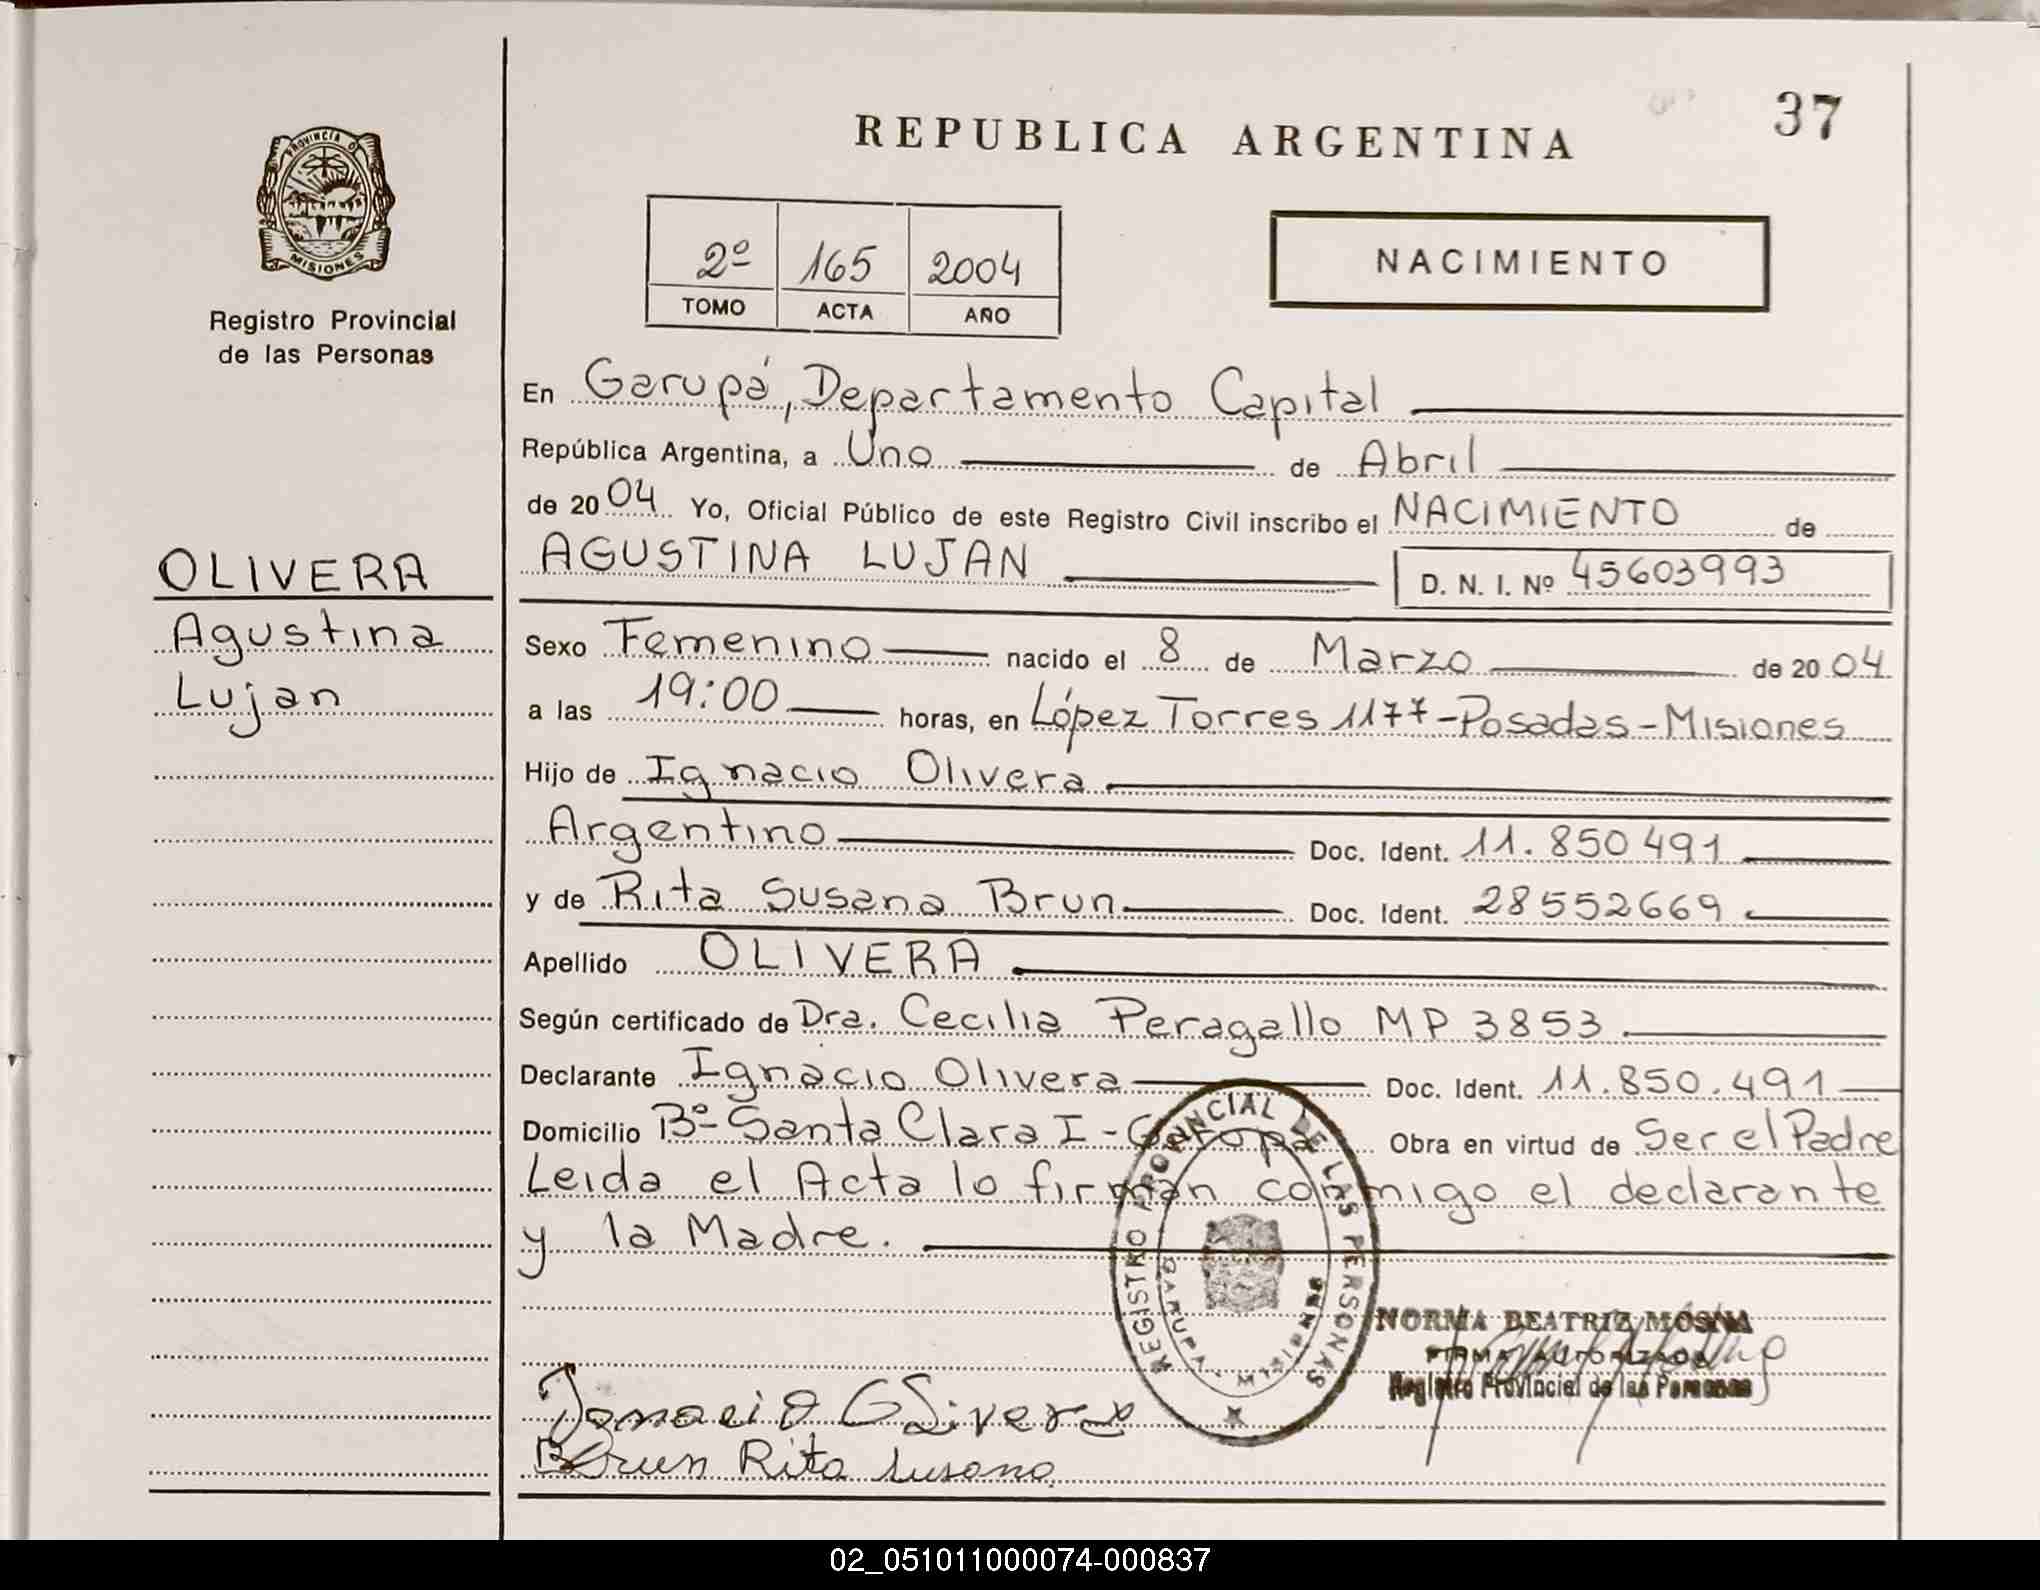 37
REPUBLICA ARGENTINA
PROVINCIA DE
MISIONES
Registro Provincial
de las Personas
2º 165 2004
TOMO ACTA AÑO
NACIMIENTO
En Garupá, Departamento Capital
República Argentina, a Uno de Abril
de 2004 Yo, Oficial Público de este Registro Civil inscribo el NACIMIENTO de
AGUSTINA LUJAN D. N. I. Nº 45603993
OLIVERA
Agustina
Lujan
Sexo Femenino nacido el 8 de Marzo de 2004
a las 19:00 horas, en López Torres 1177-Posadas-Misiones
Hijo de Ignacio Olivera
Argentino Doc. Ident. 11.850491
y de Rita Susana Brun Doc. Ident. 28552669
Apellido OLIVERA
Según certificado de Dra. Cecilia Peragallo MP 3853
Declarante Ignacio Olivera Doc. Ident. 11.850.491
Domicilio Bº Santa Clara I - Garupa Obra en virtud de Ser el Padre
Leida el Acta lo firman conmigo el declarante
y la Madre.
REGISTRO PROVINCIAL DE LAS PERSONAS
GARUPA
NORMA BEATRIZ MOSNA
FIRMA AUTORIZADA
Registro Provincial de las Personas
Ignacio Olivera
Brun Rita Susana
02_051011000074-000837